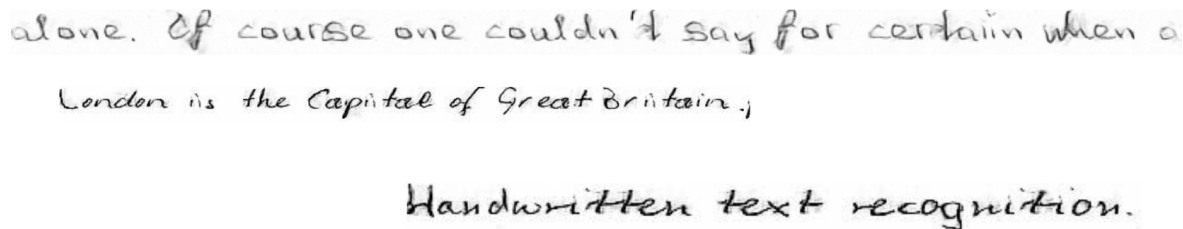 alone. Of course one couldn't say for certain when a
London is the Capital of Great Britain.
Handwritten text recognition.